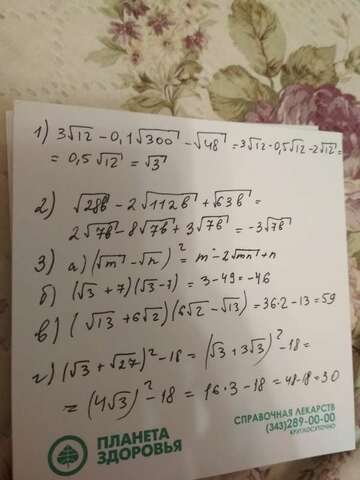 1) 3√12 - 0,1√300 - √48 = 3√12 - 0,5√12 - 2√12 =
= 0,5√12 = √3
2) √28b - 2√112b + √63b =
2√7b - 8√7b + 3√7b = -3√7b
3) а) (√m - √n)² = m - 2√mn + n
б) (√3 + 7)(√3 - 7) = 3 - 49 = -46
в) (√13 + 6√2)(6√2 - √13) = 36·2 - 13 = 59
г) (√3 + √27)² - 18 = (√3 + 3√3)² - 18 =
= (4√3)² - 18 = 16·3 - 18 = 48 - 18 = 30
ПЛАНЕТА
ЗДОРОВЬЯ
СПРАВОЧНАЯ ЛЕКАРСТВ
(343)289-00-00
КРУГЛОСУТОЧНО